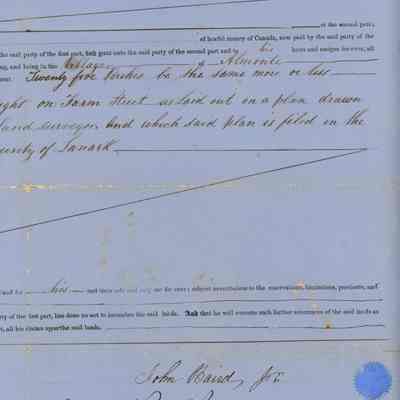 of the second part;
of lawful money of Canada, now paid by the said party of the
the said party of the first part, hath grant unto the said party of the second part and to his heirs and assigns for ever, all
ng, and being in the Village of Almonte
Twenty five Perches be the same more or less
ght on Farm Street as laid out on a plan drawn
land surveyor, and which said plan is filed in the
ounty of Lanark
and for his and their sole and only use for ever; subject nevertheless to the reservations, limitations, provisoes, and
ty of the first part, has done no act to incumber the said lands. And that he will execute such further assurances of the said lands as
t, all his claims upon the said lands.
John Baird, Jr.